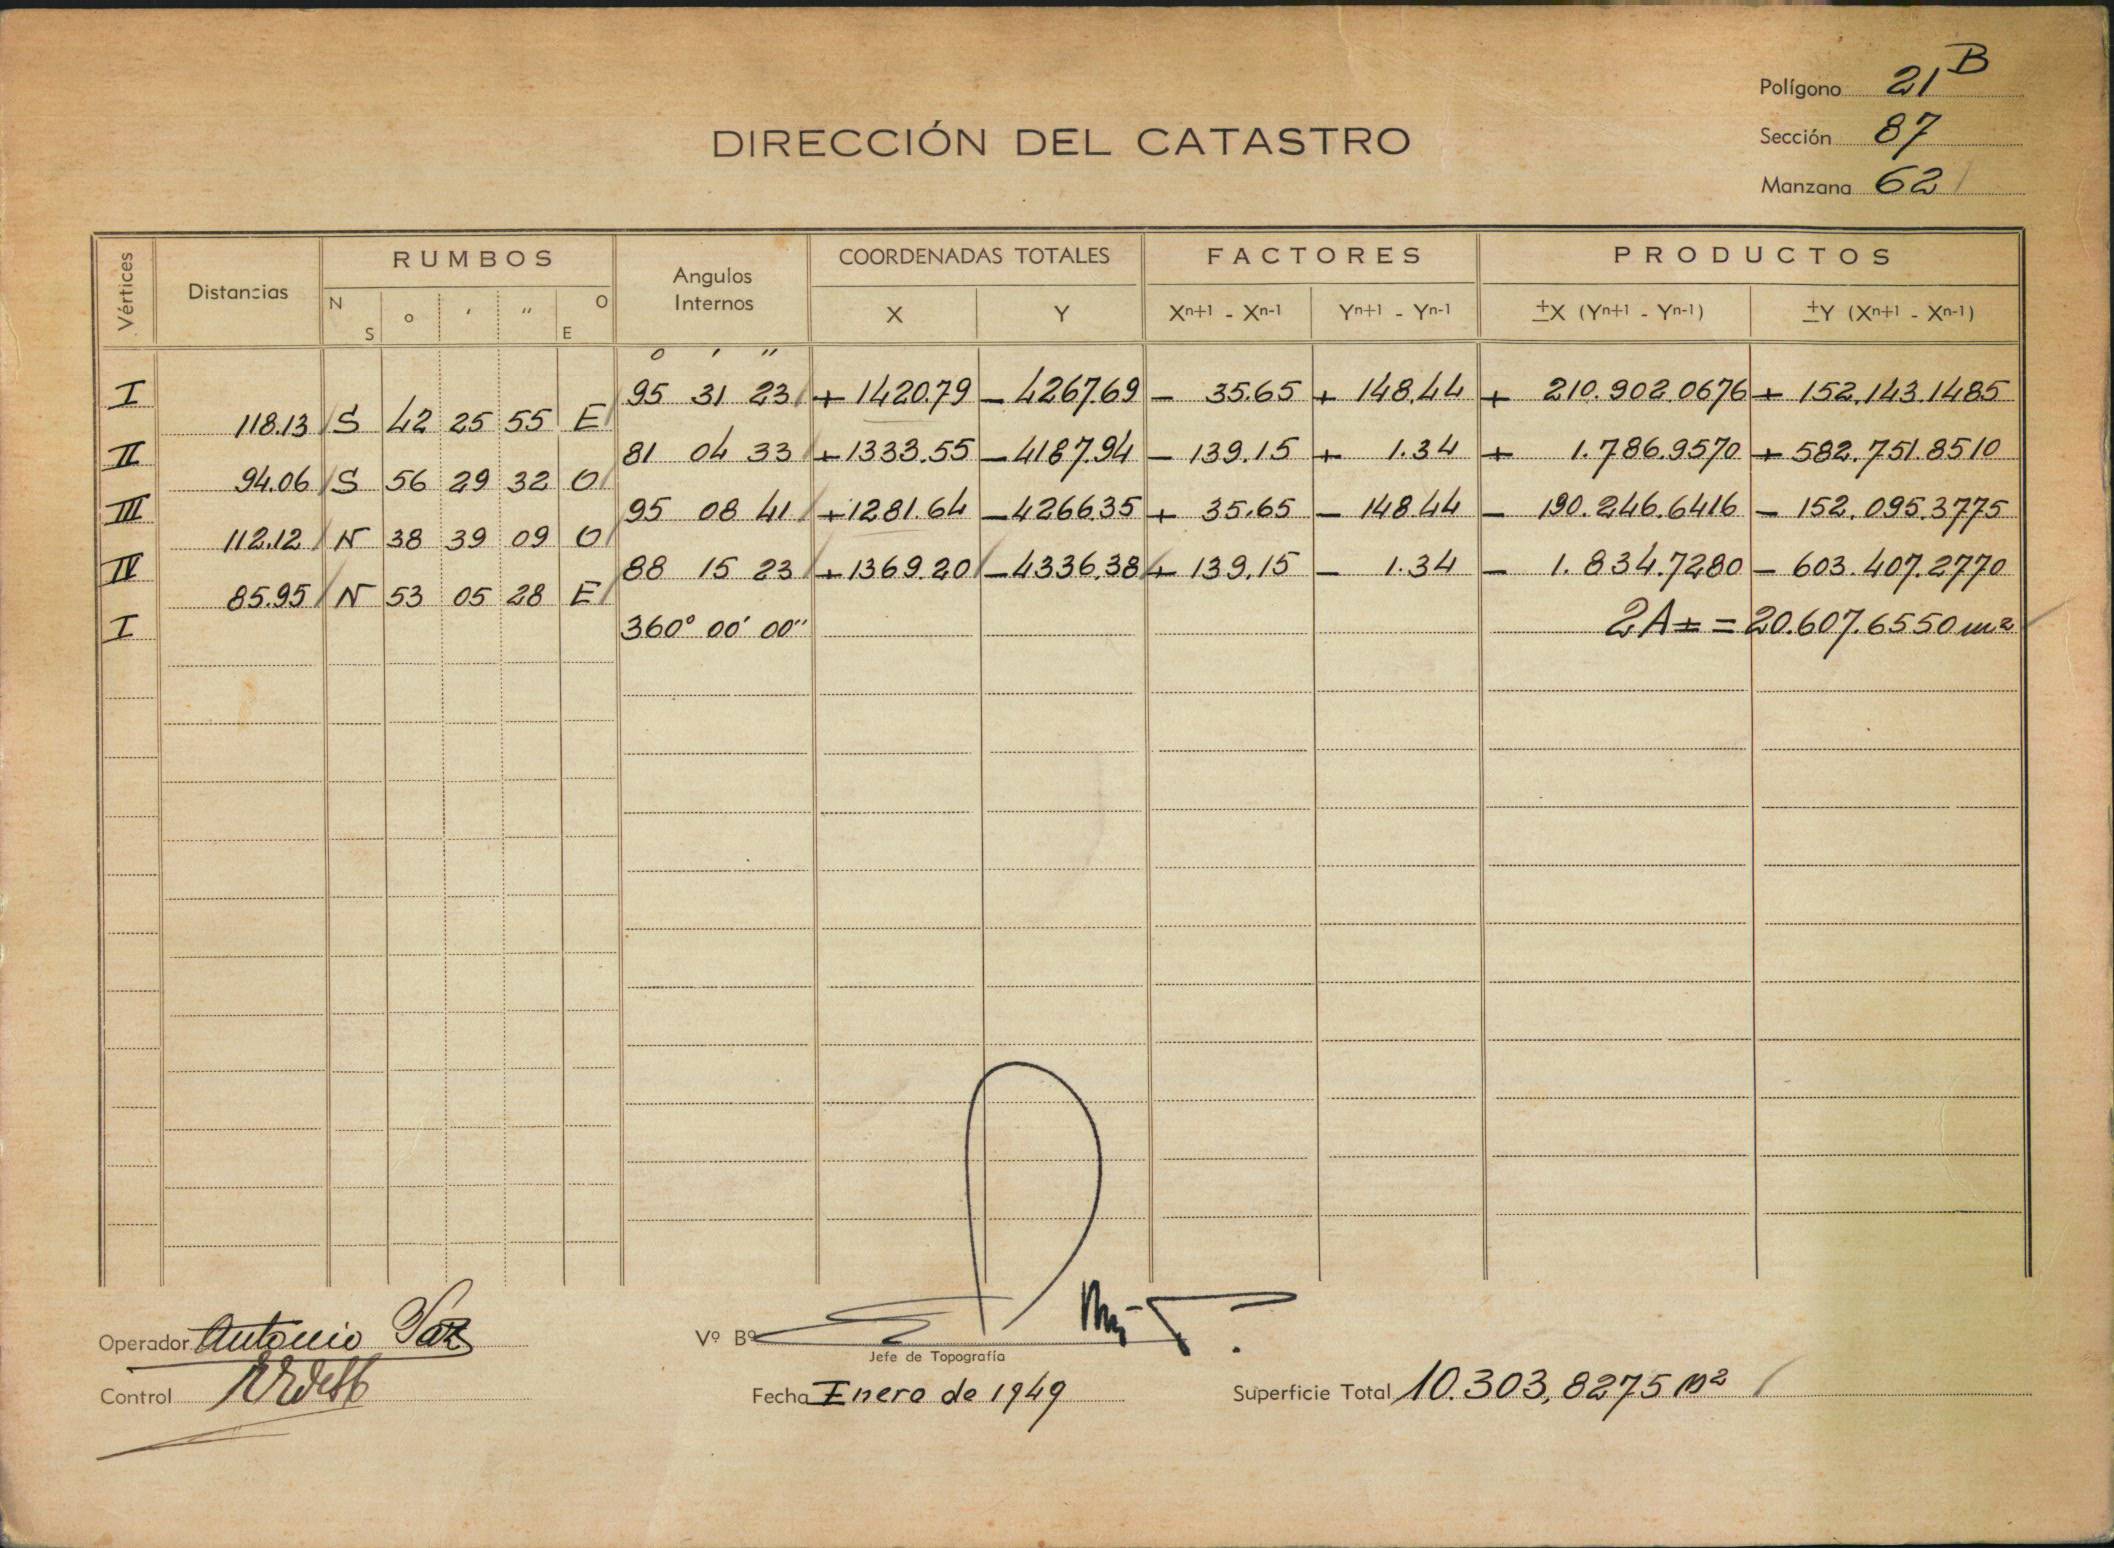 Polígono 21 B
DIRECCIÓN DEL CATASTRO
Sección 87
Manzana 62
Vértices Distancias RUMBOS Angulos Internos COORDENADAS TOTALES FACTORES PRODUCTOS
N S o ′ ″ O E X Y Xn+1 - Xn-1 Yn+1 - Yn-1 ±X (Yn+1 - Yn-1) ±Y (Xn+1 - Xn-1)
o ′ ″
I 95 31 23 + 1420.79 - 4267.69 - 35.65 + 148.44 + 210.902.0676 + 152.143.1485
118.13 S 42 25 55 E
II 81 04 33 + 1333.55 - 4187.94 - 139.15 + 1.34 + 1.786.9570 + 582.751.8510
94.06 S 56 29 32 O
III 95 08 41 + 1281.64 - 4266.35 + 35.65 - 148.44 - 190.246.6416 - 152.095.3775
112.12 N 38 39 09 O
IV 88 15 23 + 1369.20 - 4336.38 + 139.15 - 1.34 - 1.834.7280 - 603.407.2770
85.95 N 53 05 28 E
I 360° 00′ 00″ 2A± = 20.607.6550 m²
Operador Antonio Paz Vº Bº
Jefe de Topografía
Control Fecha Enero de 1949 Superficie Total 10.303,8275 m²